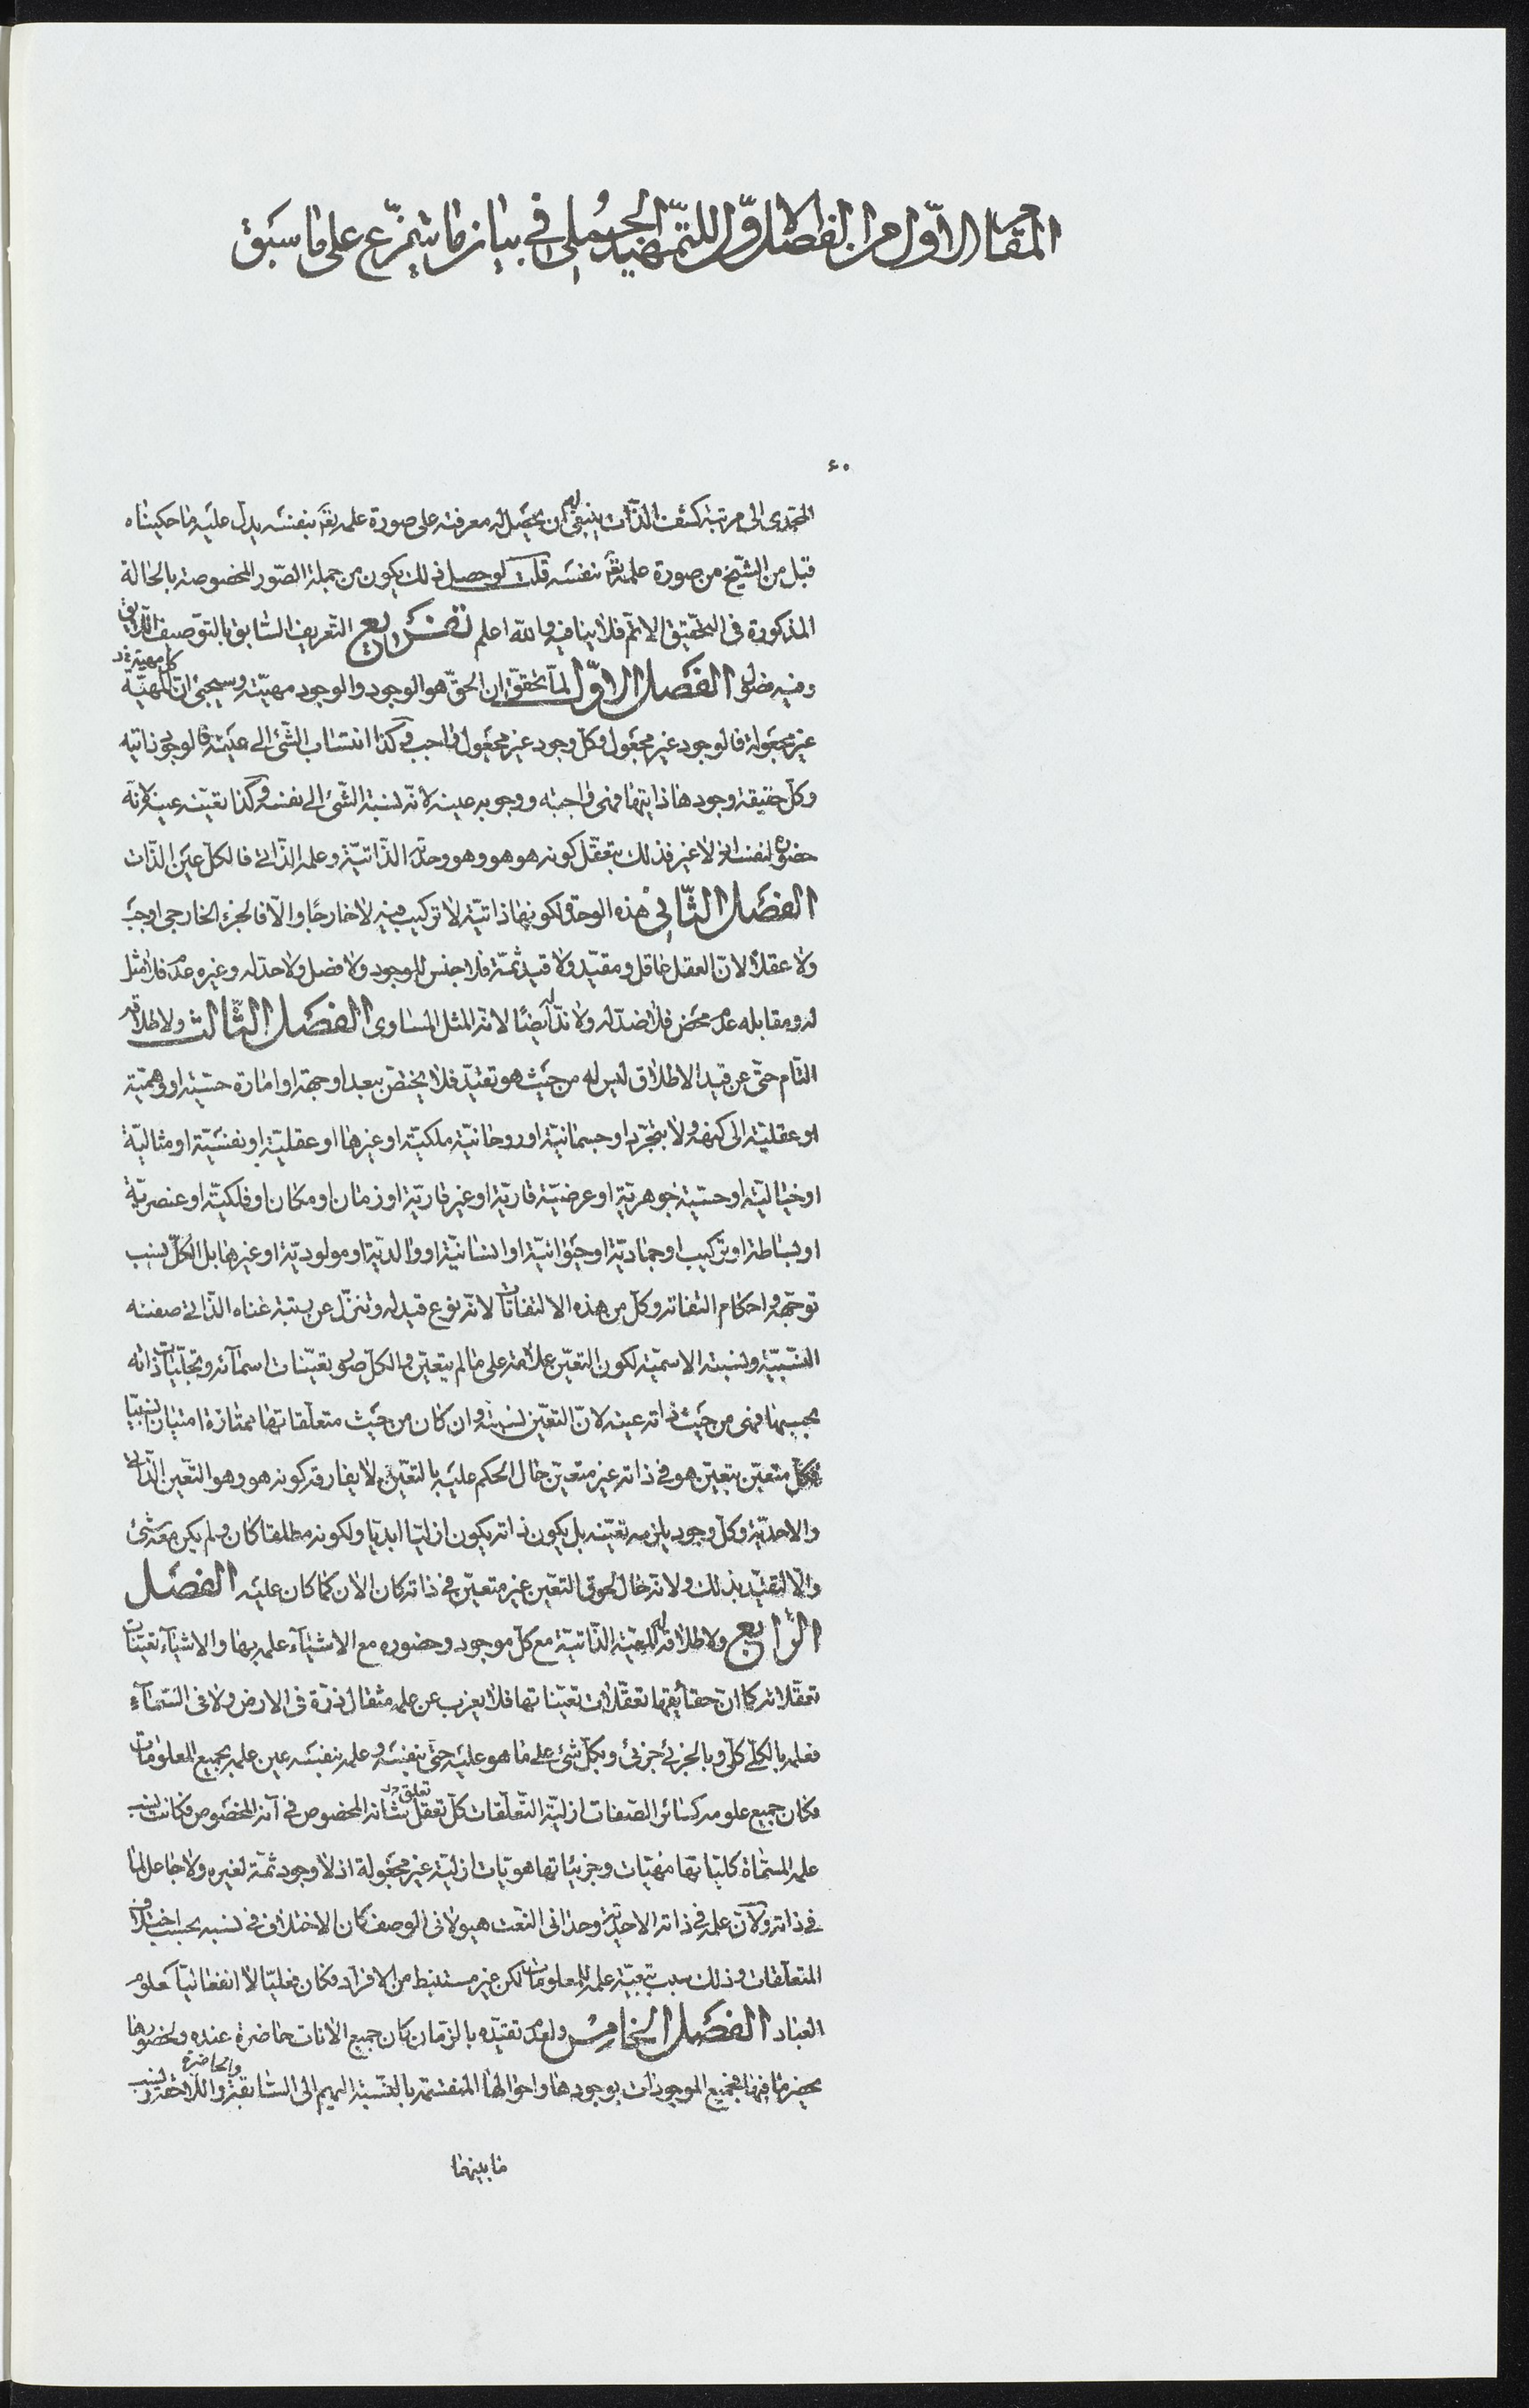 المقام الاوّل من الفصل الاوّل للتمهيد الجُملى فى بيان ما يتفرّع على ما سبق
٤٠
المحمّدى الى مرتبة كشف الذّات ينبغى ان يحصل له معرفته على صورة علمه تعَ بنفسه يدلّ عليه ما حكيناه
قبل من الشّيخ من صورة علمه تعَ بنفسه قلت لو حصل ذلك يكون من جملة الصّور المخصوصة بالحالة
المذكورة فى التحقيق الاتمّ فلا ينافيه والله اعلم تفريع التّعريف السّابق بالتّوصيف اللّايق
وفيه فصول الفصل الاوّل لمّا تحقّق ان الحقّ هو الوجود والوجود مهيّته وسيجئ انّ كل مهيّة
غير مجعولة فالوجود غير مجعول وكلّ وجود غير مجعول واجب وكذا انتساب الشّئ الى عينه فالوجوب ذاتيه
وكلّ حقيقة وجودها ذاتيتها فهى واجبة ووجوبه عينه لانّه نسبة الشّئ الى نفسه وكذا تعيّنه عينه لانّه
حضوره لنفسه لا غير فذلك بتعقّل كونه هو هو وهو وحدته الذّاتيّة وعلمه الذّاتى فالكلّ عين الذّات
الفصل الثّانى هذه الوحدة لكونها ذاتيّة لا تركيب فيه لا خارجًا والّا فالجزء الخارجى اوجب
ولا عقلاً لانّ العقل عاقل ومقيّد ولا قيد ثمّة فلا جنس للوجود ولا فصل ولا حدّ له وغيره عدم فلا مثل
له ومقابله عدم محض فلا ضدّ له ولا ندّ له ايضًا لانّه المثل المساوى الفصل الثّالث ولاطلاقه
التّام حتّى عن قيد الاطلاق ليس له من حيث هو تقيّد فلا يختصّ ببعد او جهة او امارة حسّيّة او وهميّة
او عقليّة الى كنهه ولا بتجرّد او جسمانيّة او روحانيّة ملكيّة او غيرها او عقليّة او نفسيّة او مثاليّة
او خياليّة او حسّيّة جوهريّة او عرضيّة قاريّة او غير قاريّة او زمان او مكان او فلكيّة او عنصريّة
او بساطة او تركيب او جماديّة او حيوانيّة او انسانيّة او والديّة او مولوديّة او غيرها بل الكلّ نسب
توجّهه واحكام التفاته وكلّ من هذه الالتفاتات لانّه نوع قيد له وتنزّل عن رتبة غناه الذّاتى صفته
النسبيّة ونسبته الاسميّة لكون التعيّن علامة على ما لم يتعيّن والكلّ صور تعيّنات اسمآئه وتجلّيات ذاته
بحسبها فهى من حيث ذاته عينه لانّ التعيّن نسبة وان كان من حيث متعلّقاتها ممتازة امتيازا نسبيا
فكلّ متعيّن بتعيّن هو فى ذاته غير متعيّن حال الحكم عليه بالتعيّن لا يفارقه كونه هو وهو التّعين الذّاتى
والاحديّة وكلّ وجود يلزمه تعيّنه بل يكون ذاته يكون ازليّا ابديّا ولكونه مطلقا كان ولم يكن معه شئ
والّا لتقيّد بذلك ولانّه حال لحوق التعيّن غير متعيّن فى ذاته كان الان كما كان عليه الفصل
الرّابع ولاطلاقه له المعيّة الذّاتيّة مع كلّ موجود وحضوره مع الاشياء علمه بها والاشيآء تعيّنات
تعقّلاته كما انّ حقآيقها تعقّلات تعيّناتها فلا يعزب عن علمه مثقال ذرّة فى الارض ولا فى السّمآء
فعلمه بالكلّى كلّى وبالجزئى جزئى وبكلّ شئ على ما هو عليه حتّى بنفسه وعلمه بنفسه عين علمه بجميع المعلومات
فكان جميع علومه كسائر الصّفات ازليّة التّعلّقات كلّ تعقل تعلق بشانه المخصوص فى آنه المخصوص فكانت نسب
علمه المسمّاة كليّاتها مهيّات وجزئياتها هويّات ازليّة غير مجعولة اذ لا وجود ثمّة لغيره ولا جاعل لما
فى ذاته ولانّ علمه فى ذاته الاحديّة وحدانى النّعت هيولانى الوصف كان الاختلاف فى نسبه بحسب اختلاف
المتعلّقات وذلك سبب تبعيّة علمه للمعلومات لكن غير مستنبط من الافراد فكان فعليّا لا انفعاليّا كعلوم
العباد الفصل الخامس ولعدم تقيّده بالزّمان كان جميع الانات حاضرة عنده ولحضورها
يحضر ما فيها فجميع الموجودات بوجودها واحوالها المنقسمة بالنّسبة اليهم الى السّابقة والحاضرة واللّاحقة نسب
ما بينهما